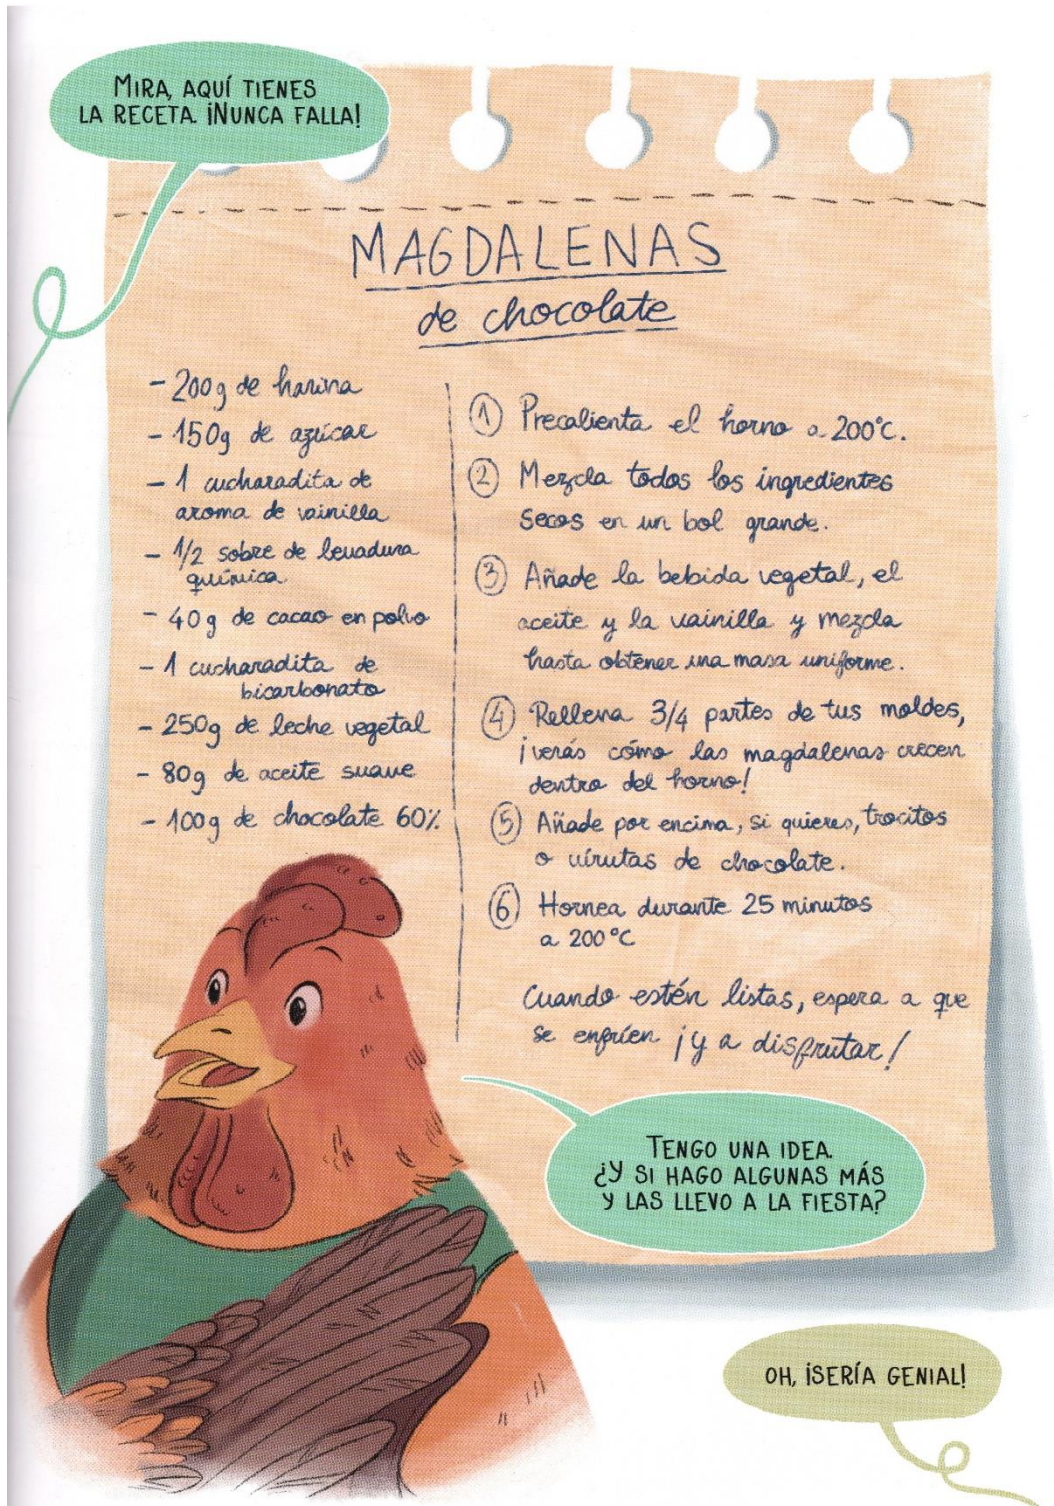 MIRA, AQUÍ TIENES
LA RECETA. ¡NUNCA FALLA!
MAGDALENAS
de chocolate
- 200g de harina
- 150g de azúcar
- 1 cucharadita de
aroma de vainilla
- 1/2 sobre de levadura
química
- 40g de cacao en polvo
- 1 cucharadita de
bicarbonato
- 250g de leche vegetal
- 80g de aceite suave
- 100g de chocolate 60%
1 Precalienta el horno a 200°C.
2 Mezcla todos los ingredientes
secos en un bol grande.
3 Añade la bebida vegetal, el
aceite y la vainilla y mezcla
hasta obtener una masa uniforme.
4 Rellena 3/4 partes de tus moldes,
¡verás cómo las magdalenas crecen
dentro del horno!
5 Añade por encima, si quieres, trocitos
o virutas de chocolate.
6 Hornea durante 25 minutos
a 200°C
Cuando estén listas, espera a que
se enfríen ¡y a disfrutar!
TENGO UNA IDEA.
¿Y SI HAGO ALGUNAS MÁS
Y LAS LLEVO A LA FIESTA?
OH, ¡SERÍA GENIAL!